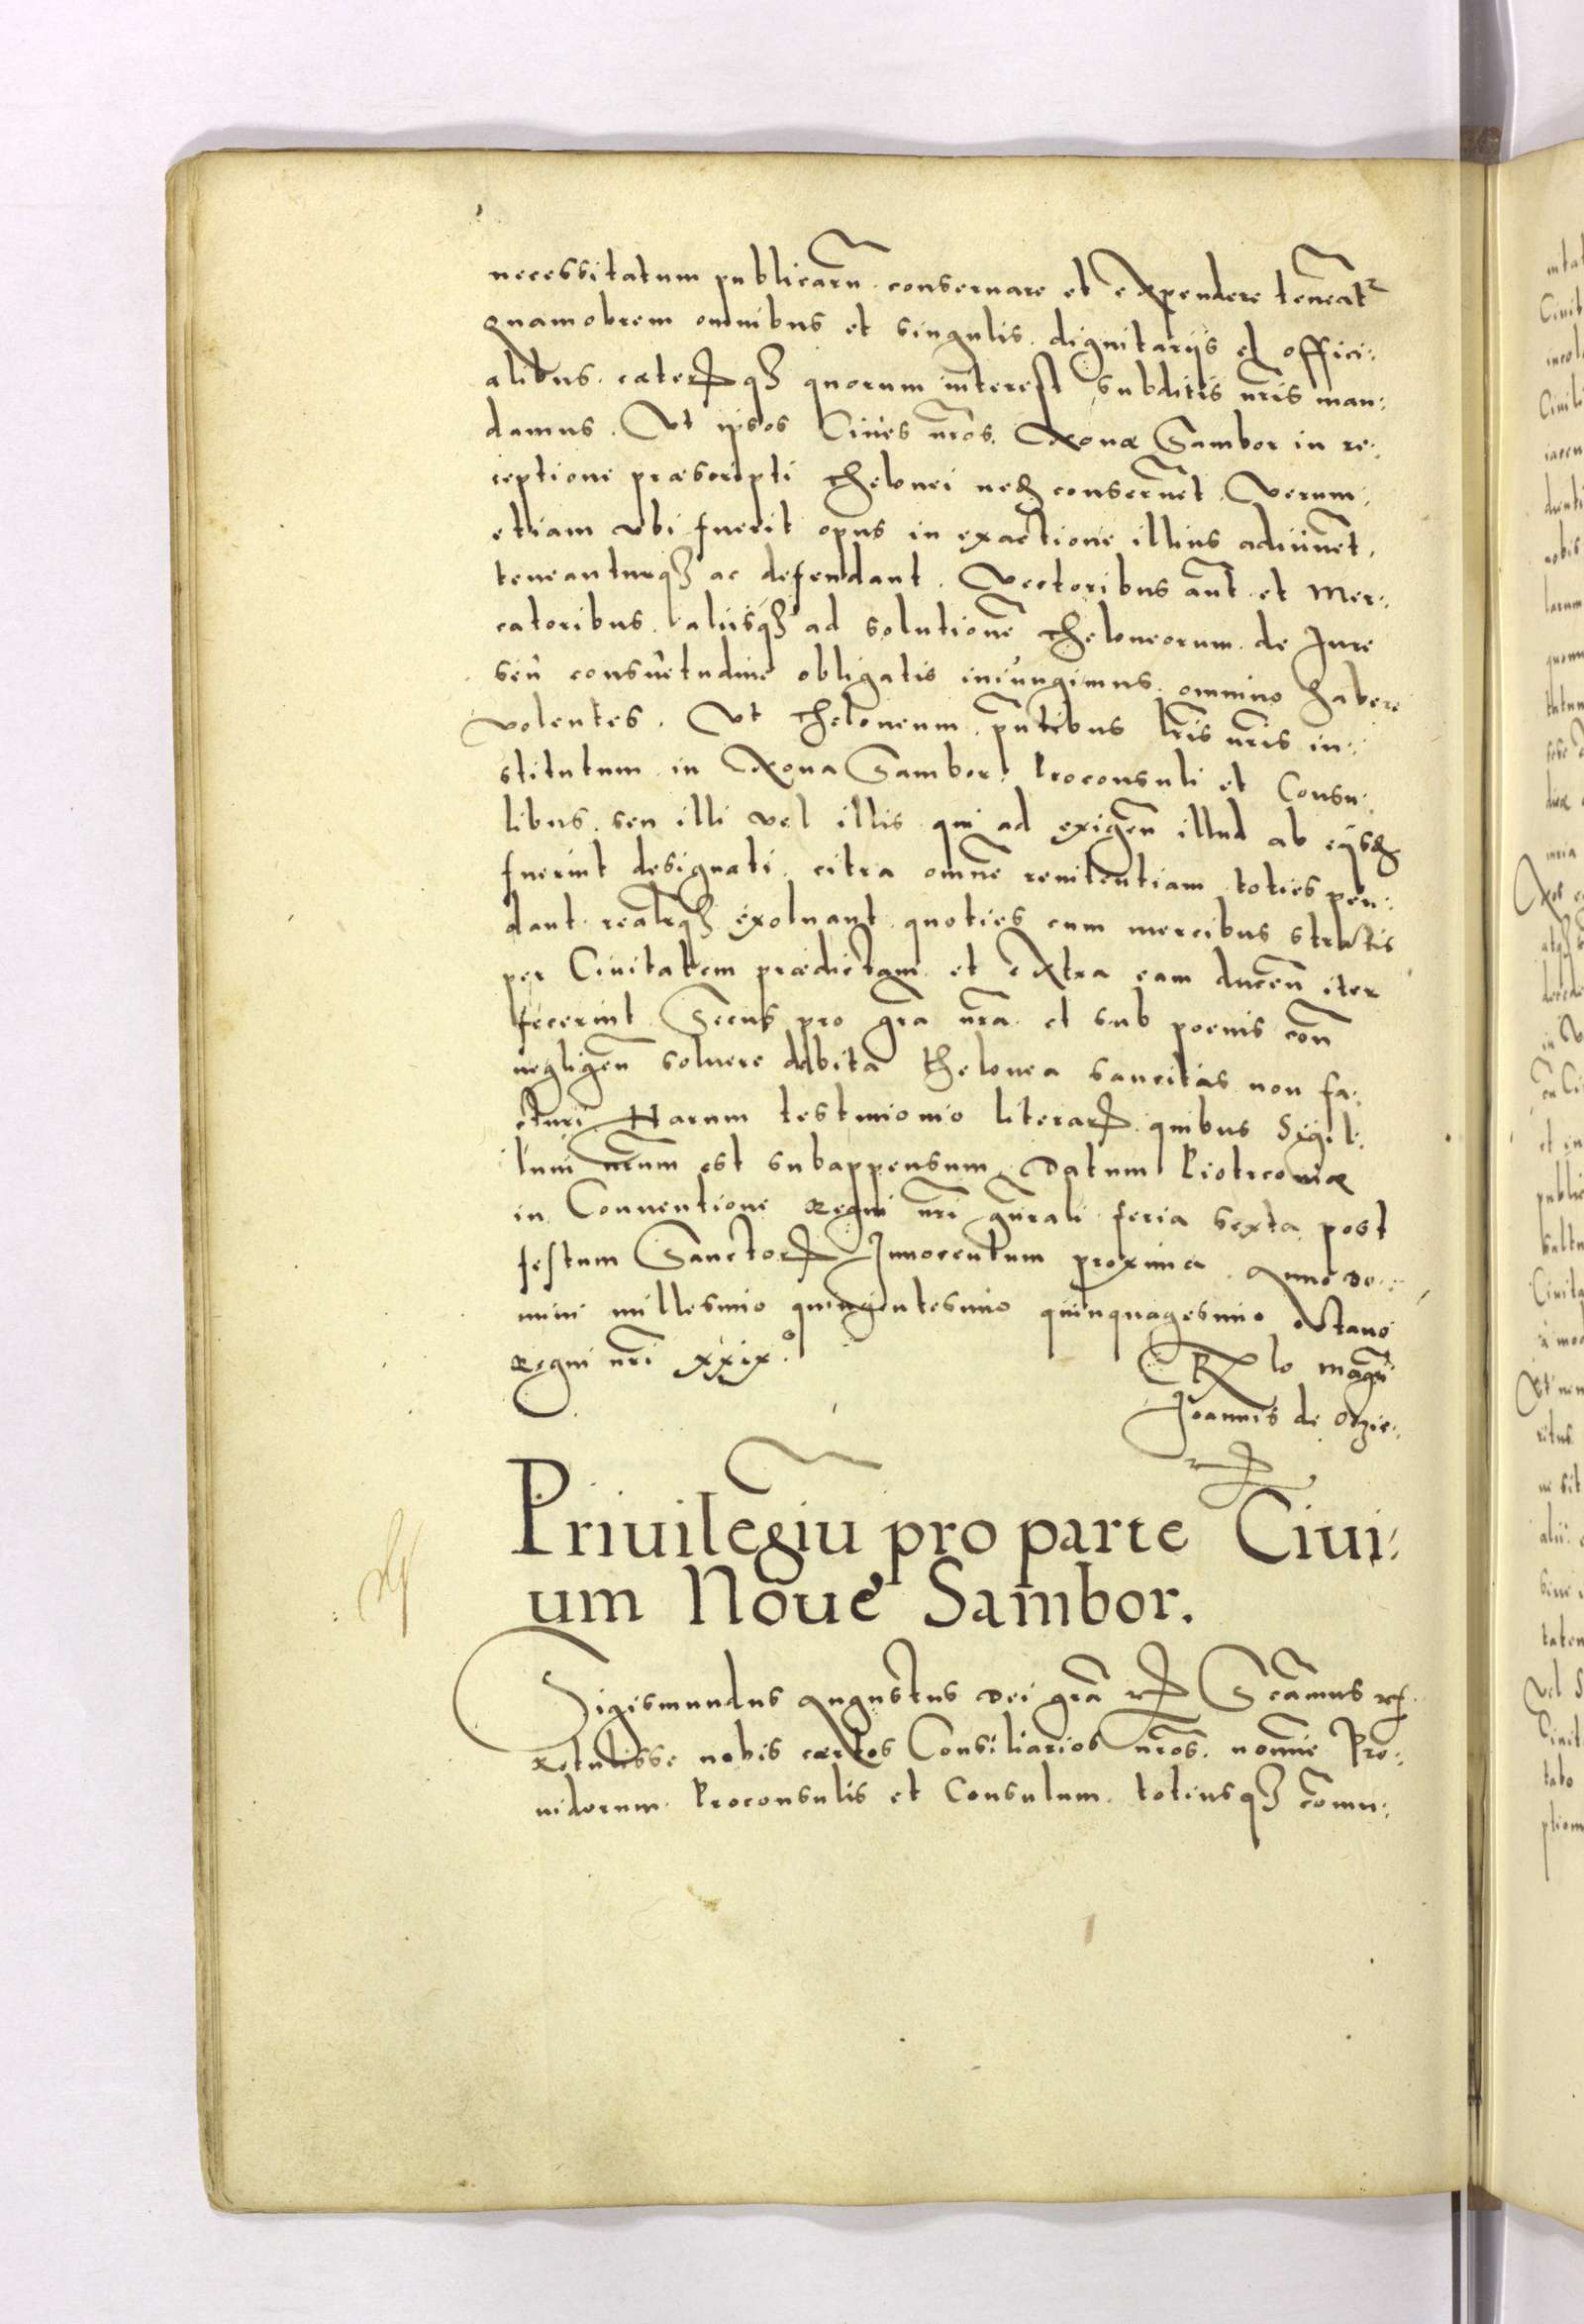 necessitatum publicarũ conseruare et expendere teneat̃
Quamobrem omnibus et singulis dignitarijs et offici:
alibus cæterisq; quorum interest subditis nr̃is man:
damus. Vt ipsos Ciues nr̃os Nouæ Sambor in re:
ceptione præscripti thelonei conseruẽt. Verum
etiam vbi fuerit opus in exactione illius adiuuẽt,
teneanturq; ac defendant. Vectoribus aũt et Mer:
catoribus alijsq; ad solutionẽ theloneorum de Jure
seu consuetudine obligatis iniungimus omnino habere
volentes. Vt theloneum pñtibus lr̃is nr̃is in:
stitutum in Noua Sambor: Proconsuli et Consu:
libus seu illi vel illis qui ad exigeñ illud ab eijsd
fuerint designati, citra omnẽ renitentiam toties pen:
dant realr̃q; exoluant quoties cum mercibus stratis
per Ciuitatem prædictam et extra eam duceñ iter
fecerint. Secus pro gr̃a nr̃a et sub poenis coñ
negligeñ soluere debita thelonea sancitas non fa:
cturi. Harum testimonio literarum quibus Sigil:
lum nr̃um est subappensum. Datum Piotrcoviæ
in Conuentione Regni nr̃i gñrali feria sexta post
festum Sanctorum Innocentum proxima. Anno Do:
mini millesimo quingentesimo quinquagesimo octauo
Regni nr̃i xxix.º
Rlo Magci
Joannis de Oczie:
Priuilegiũ pro parte Ciui:
um Nouę Sambor.
Sigismundus Augustus Dei gr̃a etc Significamus etc.
Retulisse nobis certos Consiliarios nr̃os. nomine Pro:
uidorum Proconsulis et Consulum totiusq; comu: